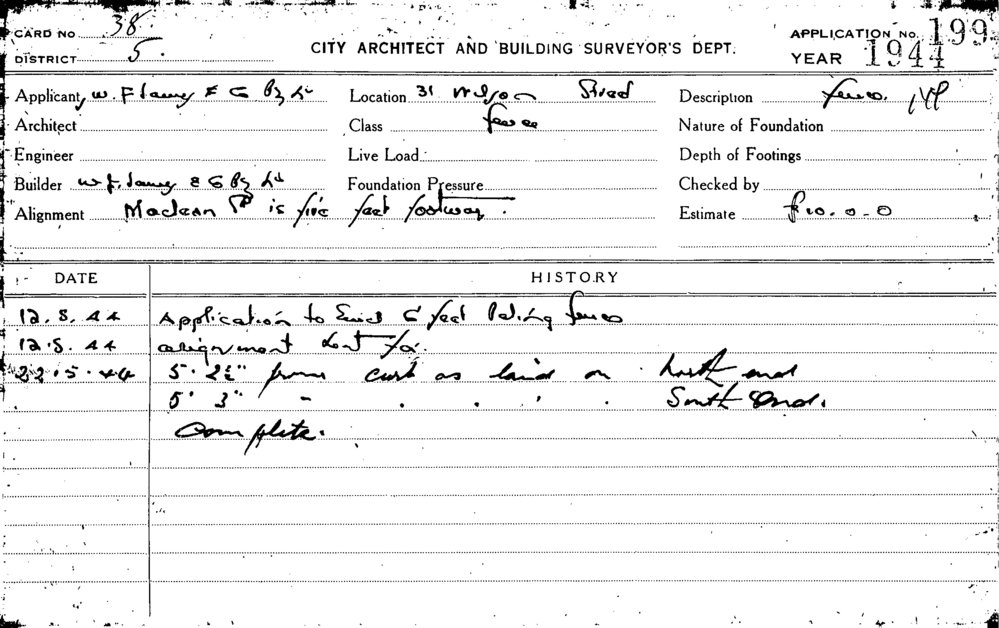 CARD No 38.
DISTRICT 5.
CITY ARCHITECT AND BUILDING SURVEYOR'S DEPT.
APPLICATION No. 199
YEAR 1944
Applicant W. F &
Location 31 Wilson Street
Description fence.
Architect
Class fence
Nature of Foundation
Engineer
Live Load
Depth of Footings
Builder W. F. &
Foundation Pressure
Checked by
Alignment Maclean St is five feet footway.
Estimate £10.0.0
DATE
HISTORY
12.5.44 Application to 6 feet Paling fence
12.5.44 alignment for.
22.5.44 5' 2½" from curb as laid on North end
5' 3" " " " " " South End.
Complete.